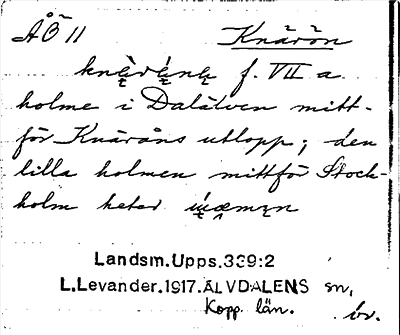 ÅÖ 11 Knärön
f. VII a
holme i Dalälven mitt-
för Knäråns utlopp; den
lilla holmen mittför Stock-
holm heter
Landsm.Upps.339:2
L.Levander.1917.ÄLVDALENS sn,
Kopp. län. br.